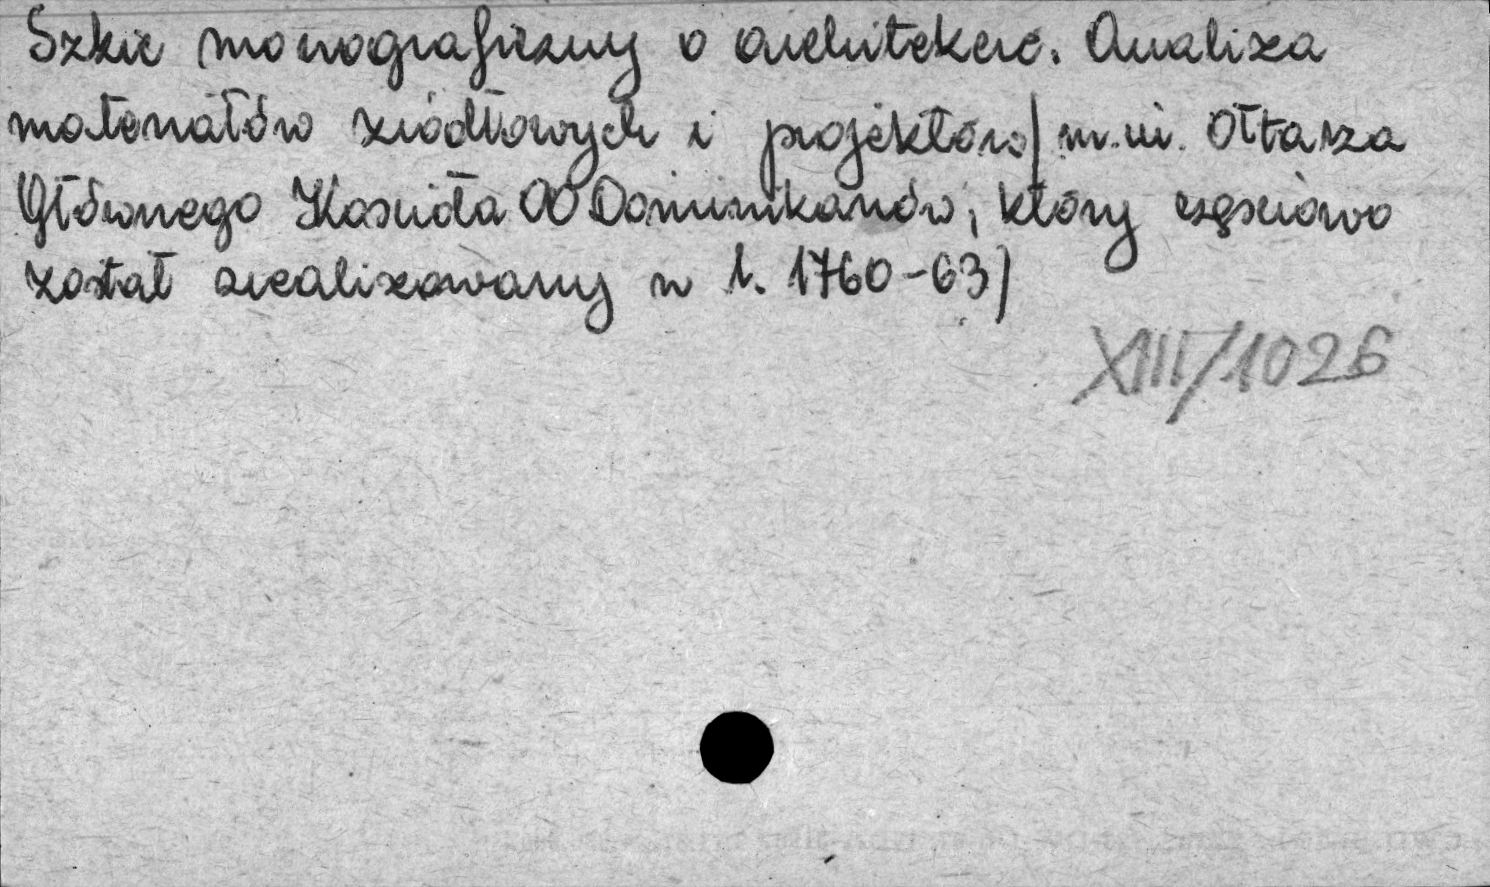 Szkic monograficzny o architekcie. Analiza
materiałów źródłowych i projektów/m.in. Ołtarza
Głównego Kościoła OO Dominikanów, który częściowo
został zrealizowany w l. 1760-63/
XIII/1026